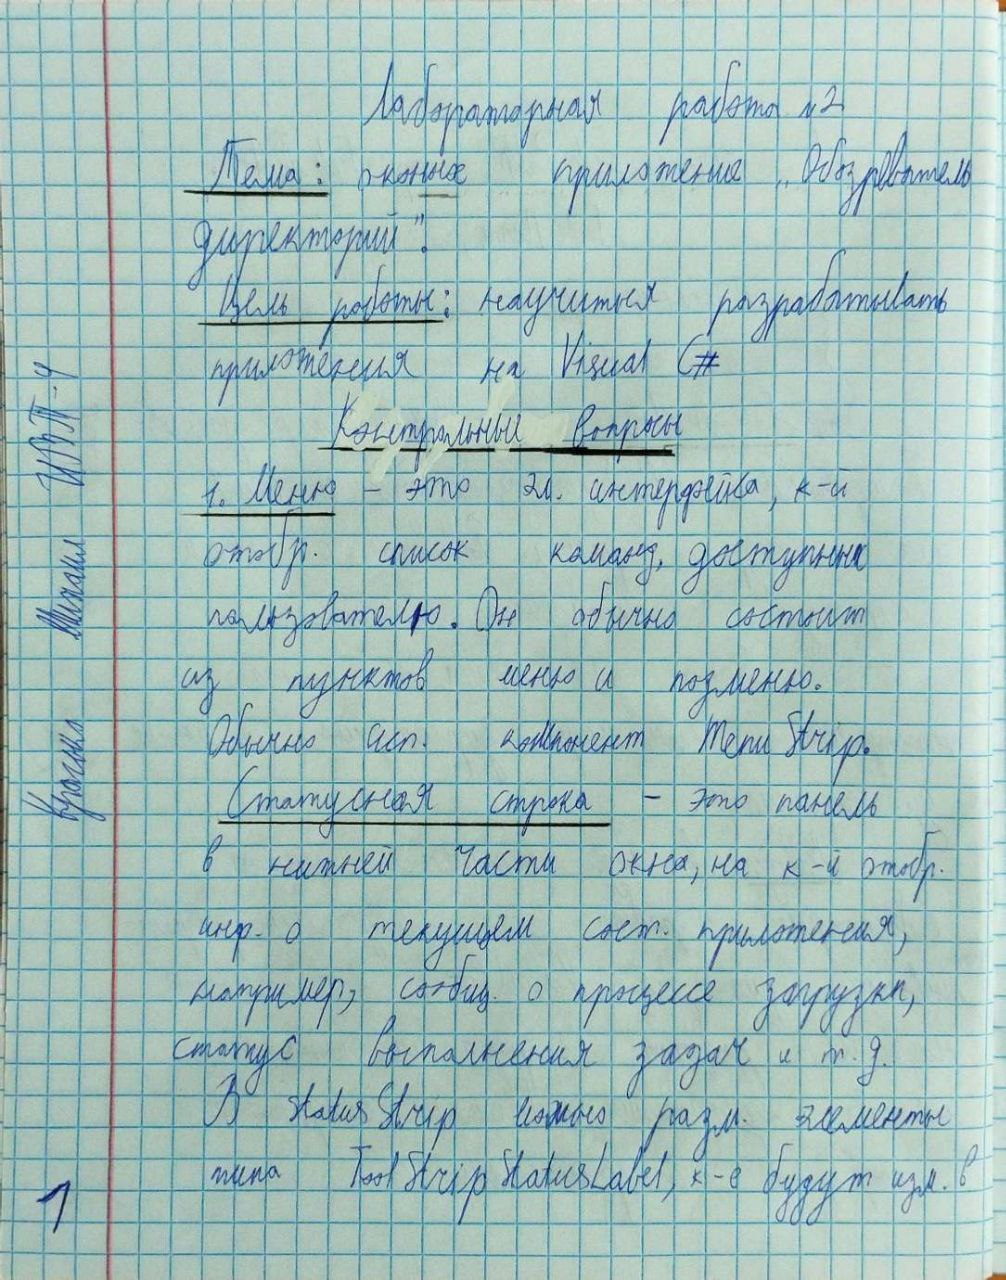 Лабораторная работа №2
Тема: оконное приложение „Обозреватель
директорий".
Цель работы: научиться разрабатывать
приложения на Visual C#
Контрольные вопросы
1. Меню – это эл. интерфейса, к-й
отобр. список команд, доступных
пользователю. Он обычно состоит
из пунктов меню и подменю.
Обычно исп. компонент MenuStrip.
Статусная строка – это панель
в нижней части окна, на к-й отобр.
инф. о текущем сост. приложения,
например, сообщ. о процессе загрузки,
статус выполнения задач и т.д.
В StatusStrip можно разм. элементы
типа ToolStripStatusLabel, к-е будут изм. в
Михаил ИВТ-4
1